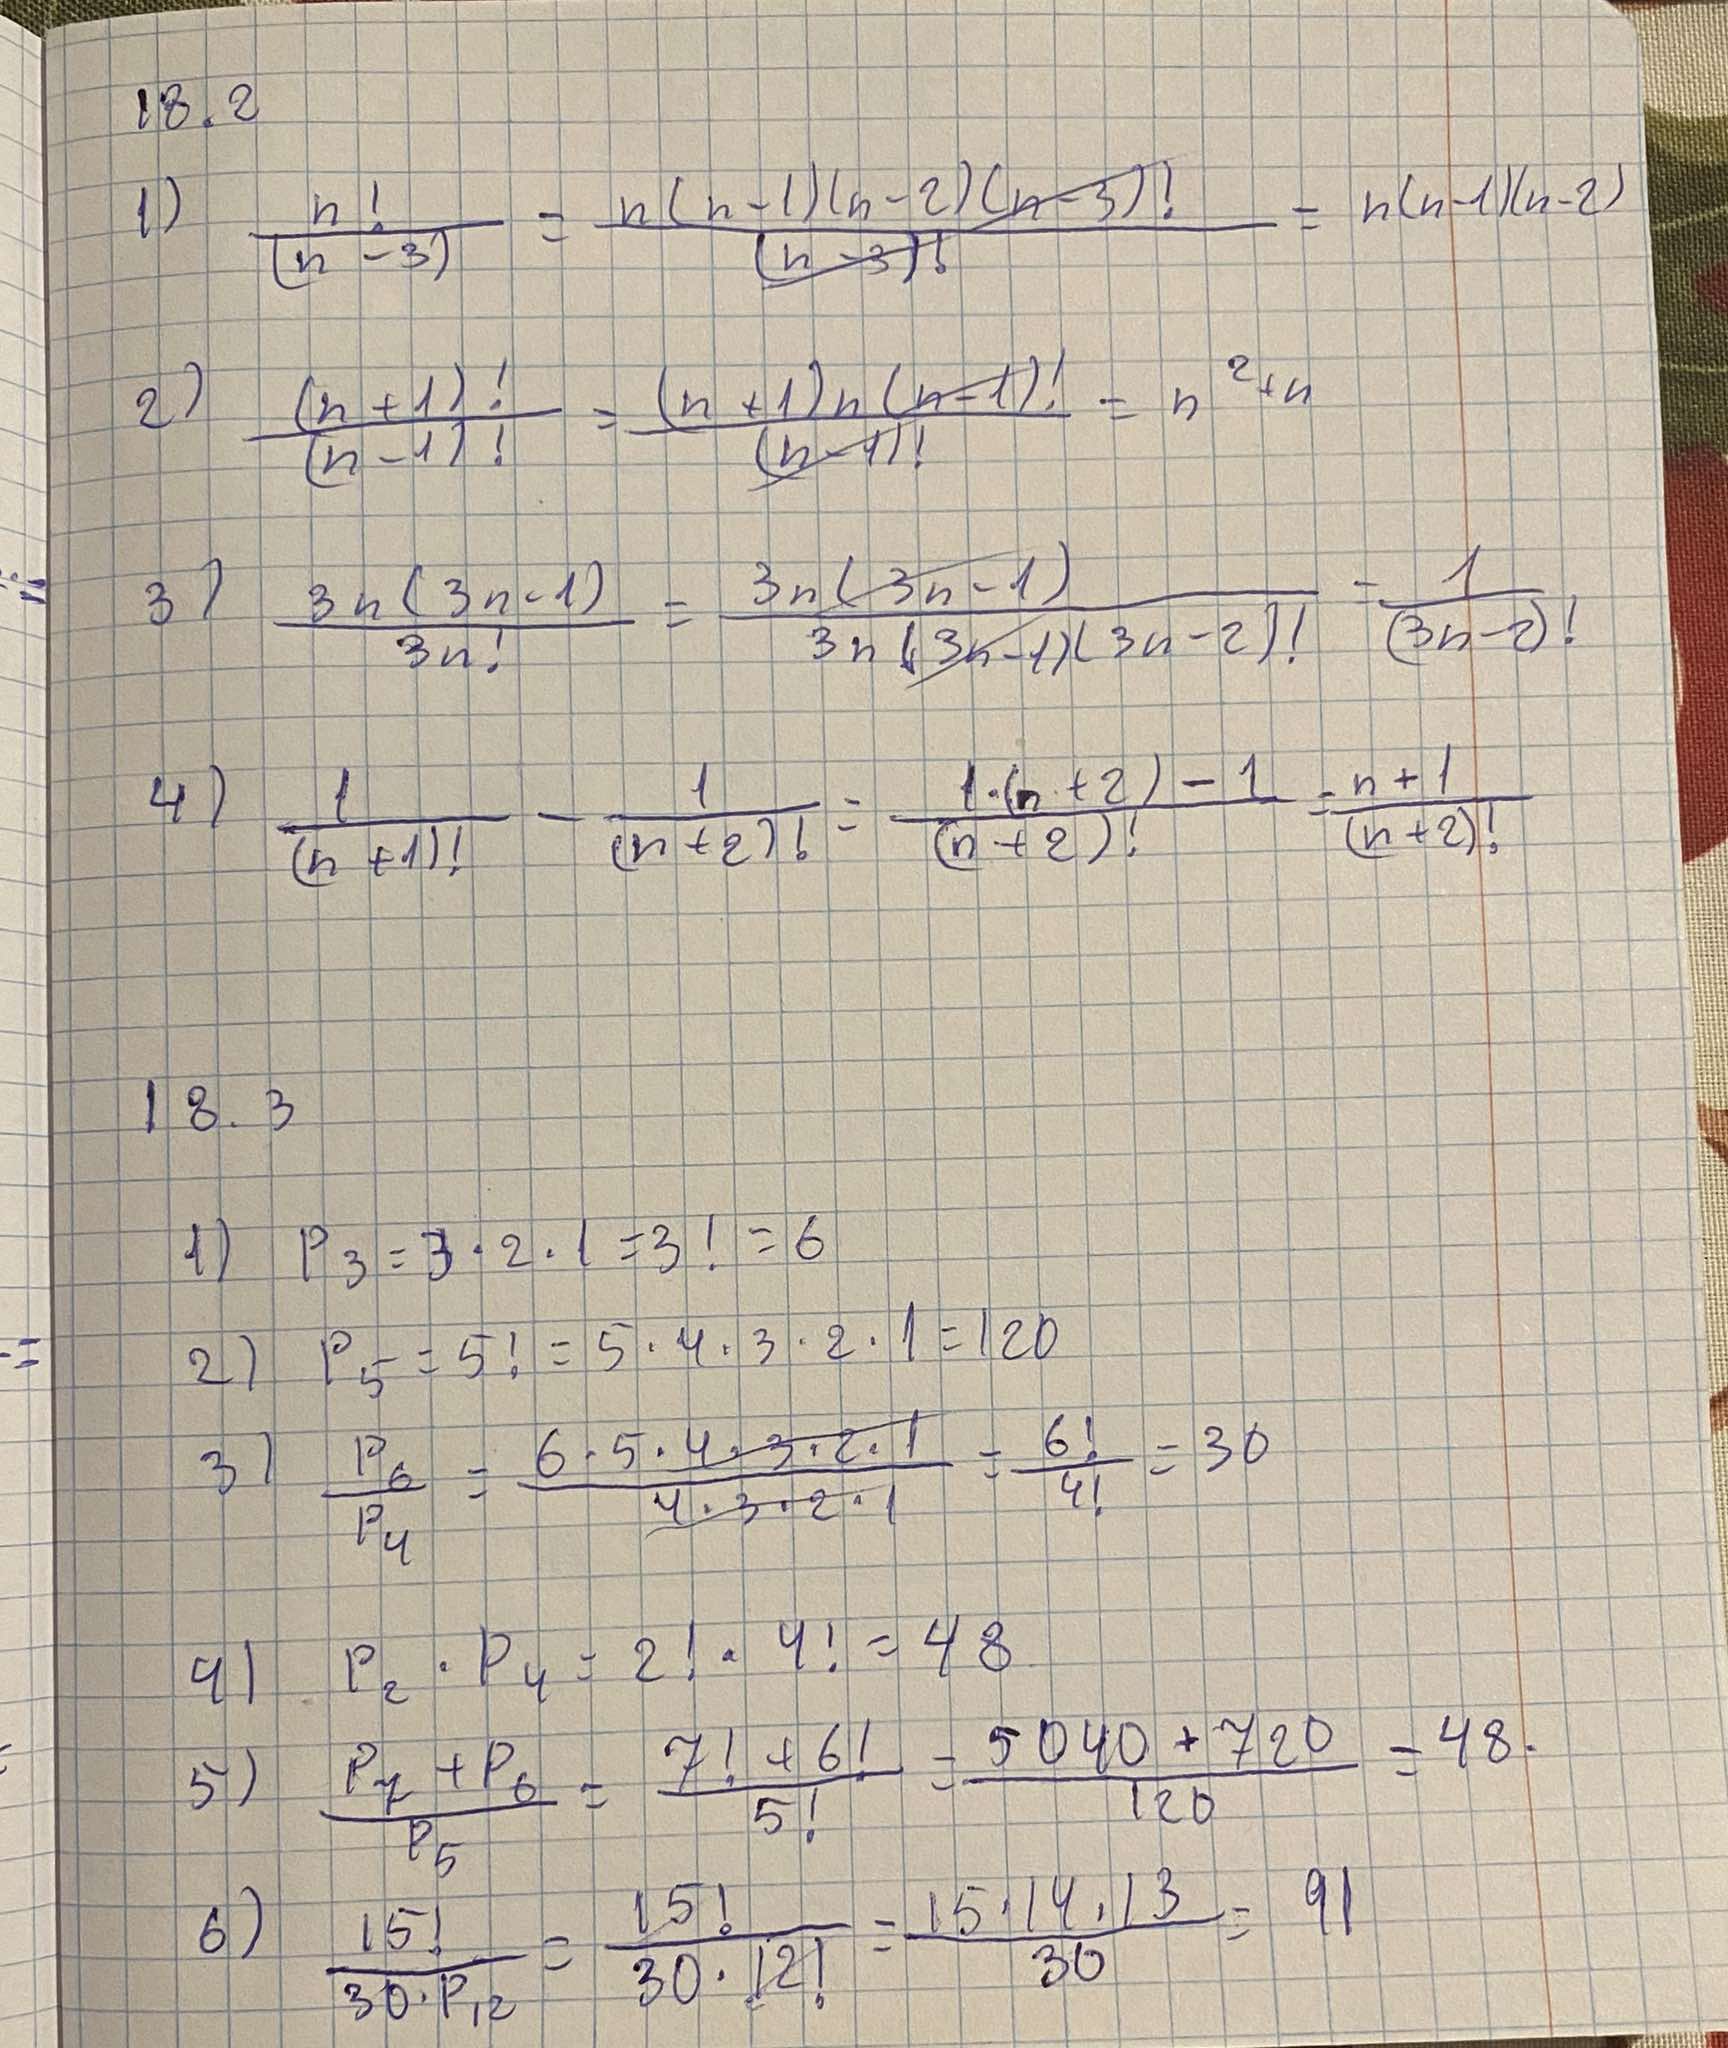 18.2
1) n!/(n-3) = n(n-1)(n-2)(n-3)!/(n-3)! = n(n-1)(n-2)
2) (n+1)!/(n-1)! = (n+1)n(n-1)!/(n-1)! = n²+n
3) 3n(3n-1)/3n! = 3n(3n-1)/3n(3n-1)(3n-2)! = 1/(3n-2)!
4) 1/(n+1)! - 1/(n+2)! = 1·(n+2)-1/(n+2)! = n+1/(n+2)!
18.3
1) P₃=3·2·1=3!=6
2) P₅=5!=5·4·3·2·1=120
3) P₆/P₄ = 6·5·4·3·2·1/4·3·2·1 = 6!/4! = 30
4) P₂·P₄=2!·4!=48
5) P₇+P₆/P₅ = 7!+6!/5! = 5040+720/120 = 48.
6) 15!/30·P₁₂ = 15!/30·12! = 15·14·13/30 = 91